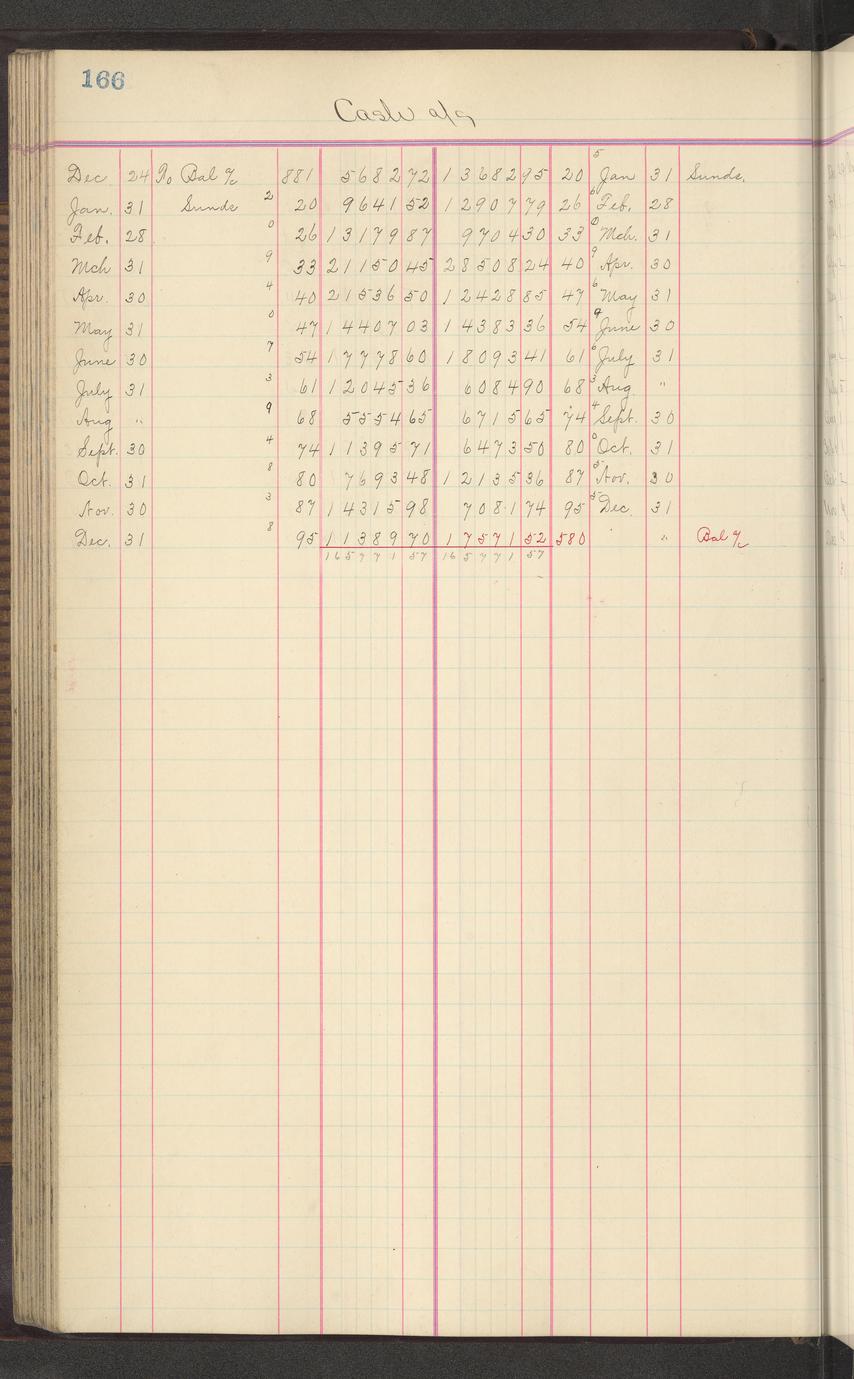 166
Cash a/c
Dec 24 To Bal a/c 881 5682 72 13682 95 20 5 Jan 31 Sunds.
Jan. 31 Sunds 2 20 9641 52 12907 79 26 6 Feb. 28
Feb. 28 0 26 13179 87 9704 30 33 0 Mch. 31
Mch 31 9 33 21150 45 28508 24 40 9 Apr. 30
Apr. 30 4 40 21536 50 12428 85 47 6 May 31
May 31 0 47 14407 03 14383 36 54 9 June 30
June 30 7 54 17778 60 18093 41 61 6 July 31
July 31 3 61 12045 36 6084 90 68 3 Aug. "
Aug " 9 68 5554 65 6715 65 74 4 Sept. 30
Sept. 30 4 74 11395 71 6473 50 80 0 Oct. 31
Oct. 31 8 80 7693 48 12135 36 87 5 Nov. 30
Nov. 30 3 87 14315 98 7081 74 95 5 Dec. 31
Dec. 31 8 95 11389 70 17571 52 580 " Bal a/c
165771 57 165771 57